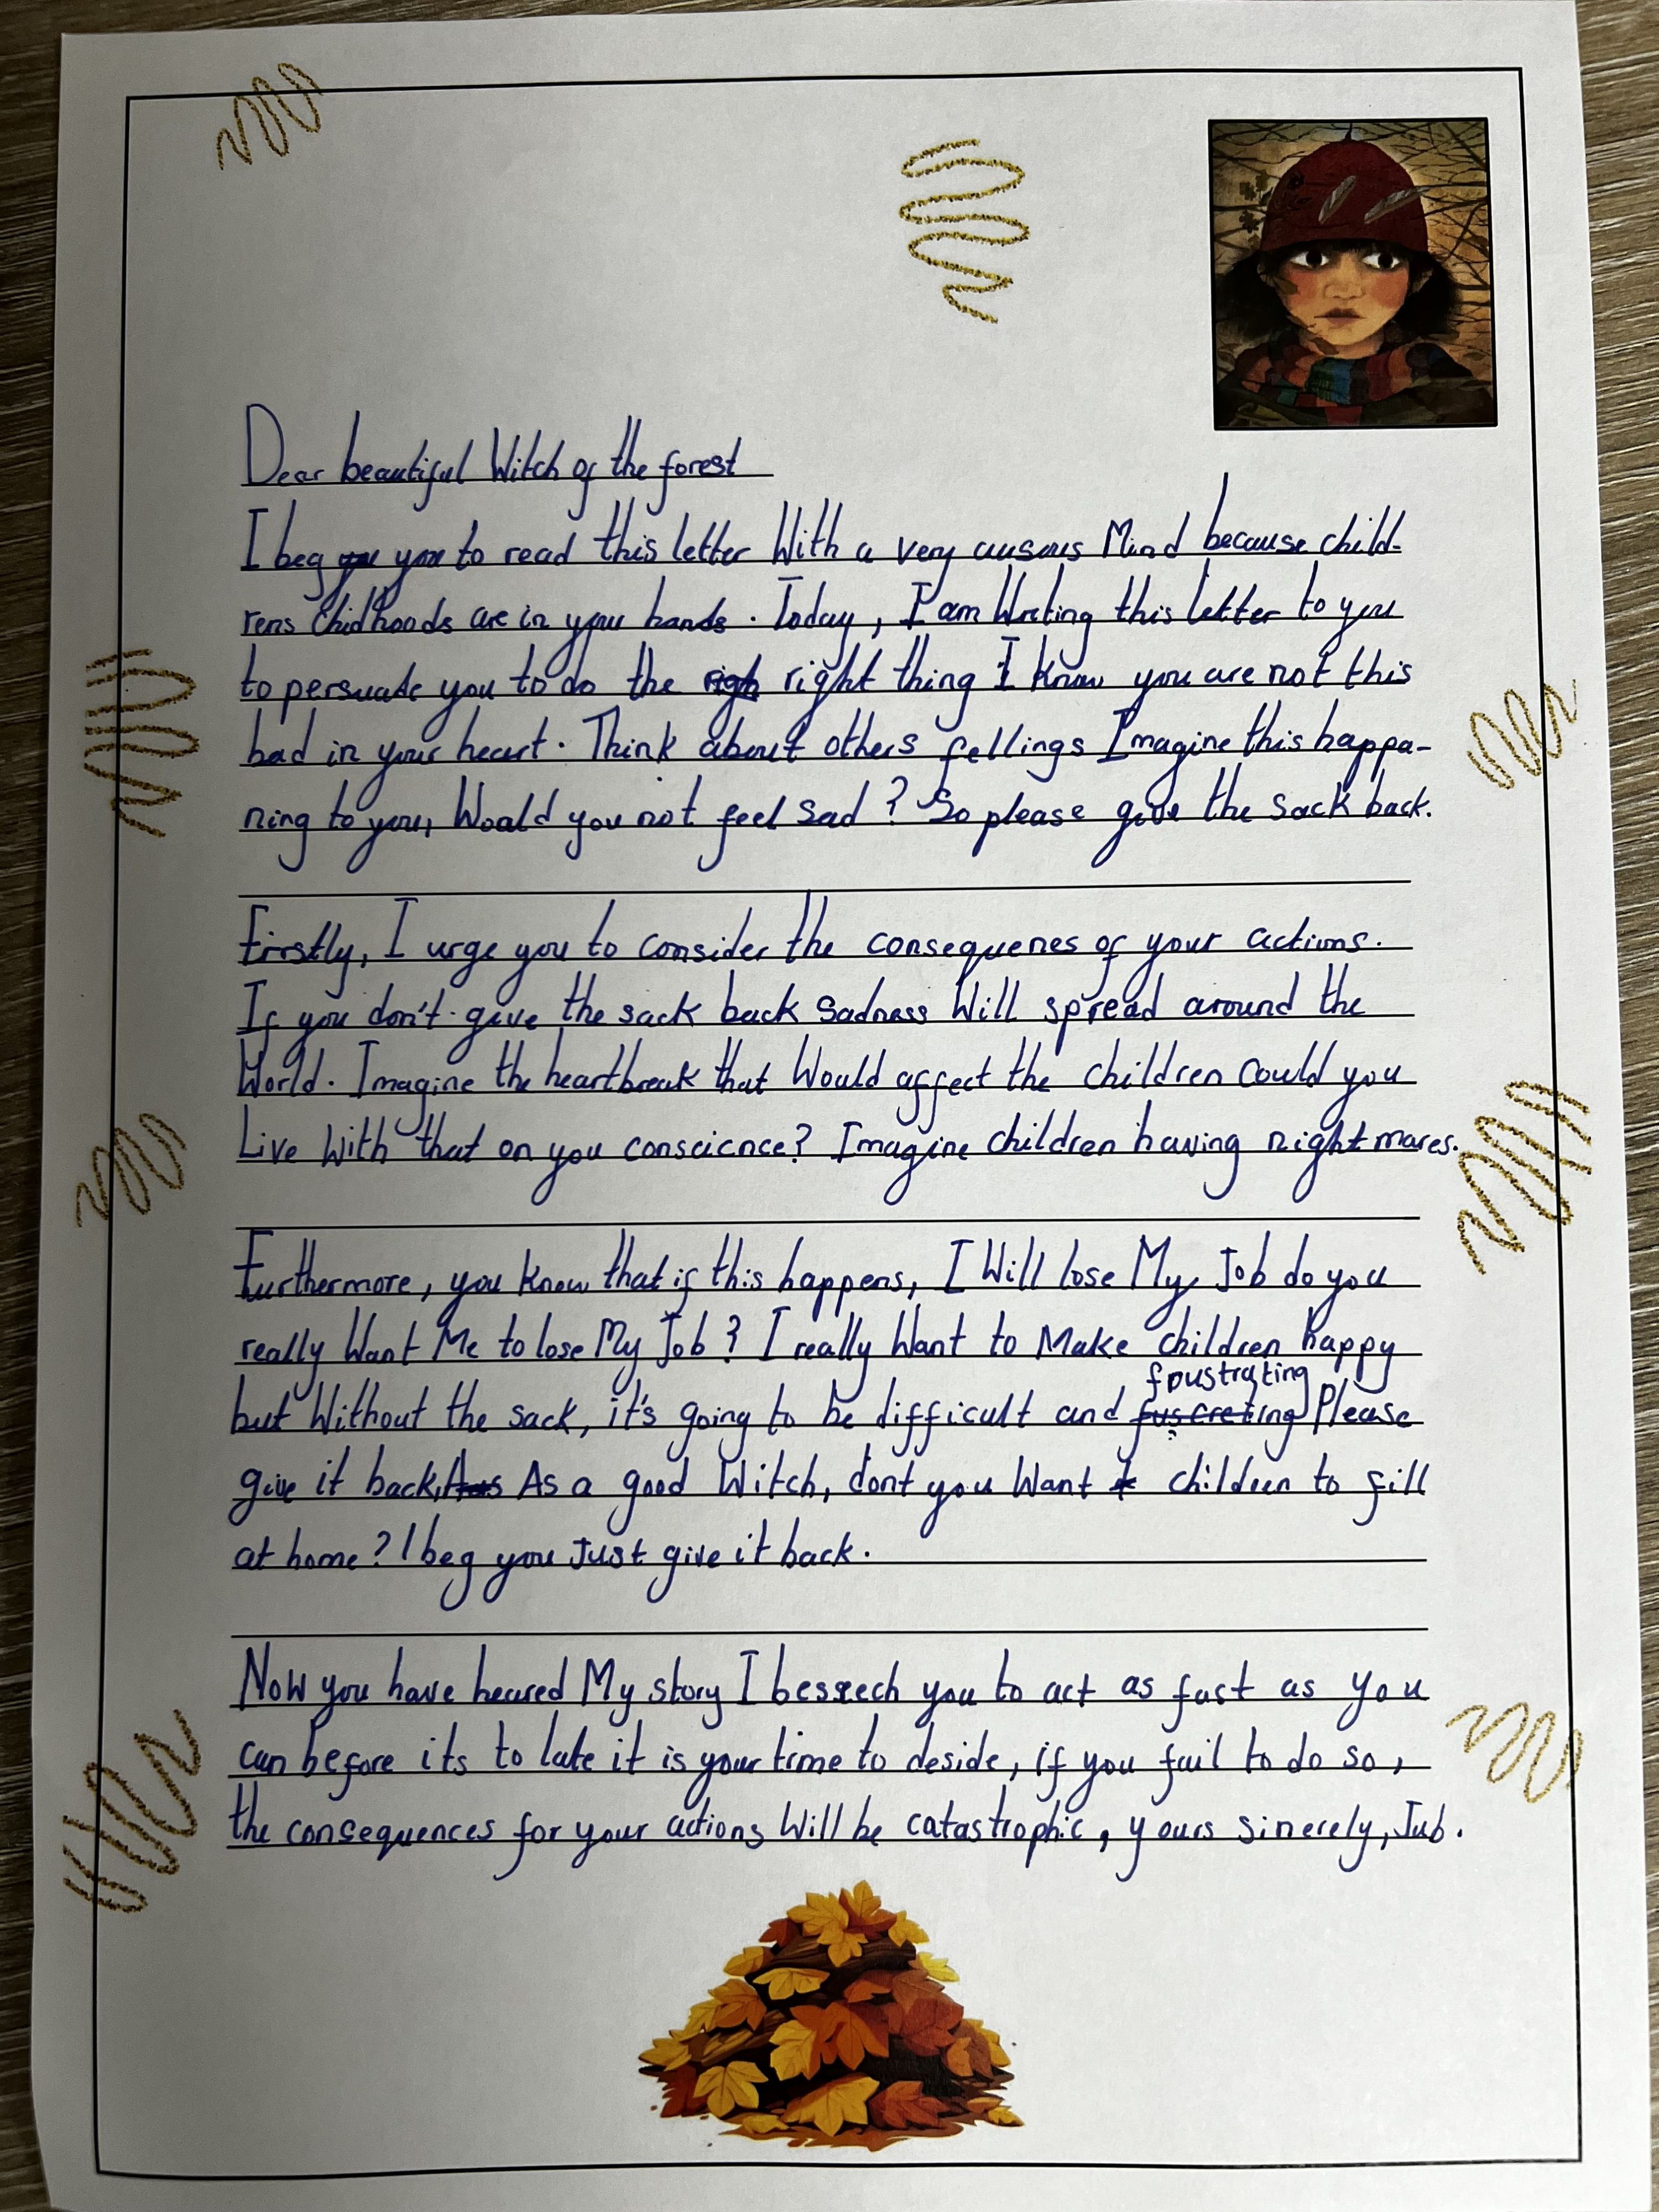 Dear beautiful Witch of the forest
I beg you to read this letter With a very Mind because child-
rens Chidhoods are in your hands. Today, I am Writing this letter to you
to persuade you to do the right thing I know you are not this
bad in your heart. Think about others fellings Imagine this happa-
ning to you, Would you not feel sad? So please give the sack back.
Firstly, I urge you to consider the consequenes of your actions.
If you don't give the sack back sadness Will spread around the
World. Imagine the heartbreak that Would affect the children Could you
Live With that on you conscience? Imagine children having nightmares.
Furthermore, you know that if this happens, I Will lose My Job do you
really Want Me to lose My Job? I really Want to Make children happy
but Without the sack, it's going to be difficult and froustrating Please
give it back, As a good Witch, dont you Want children to fill
at home? I beg you Just give it back.
Now you have heared My story I beseech you to act as fast as you
can before its to late it is your time to deside, if you fail to do so,
the consequences for your actions Will be catastrophic, yours sincerely, Jub.